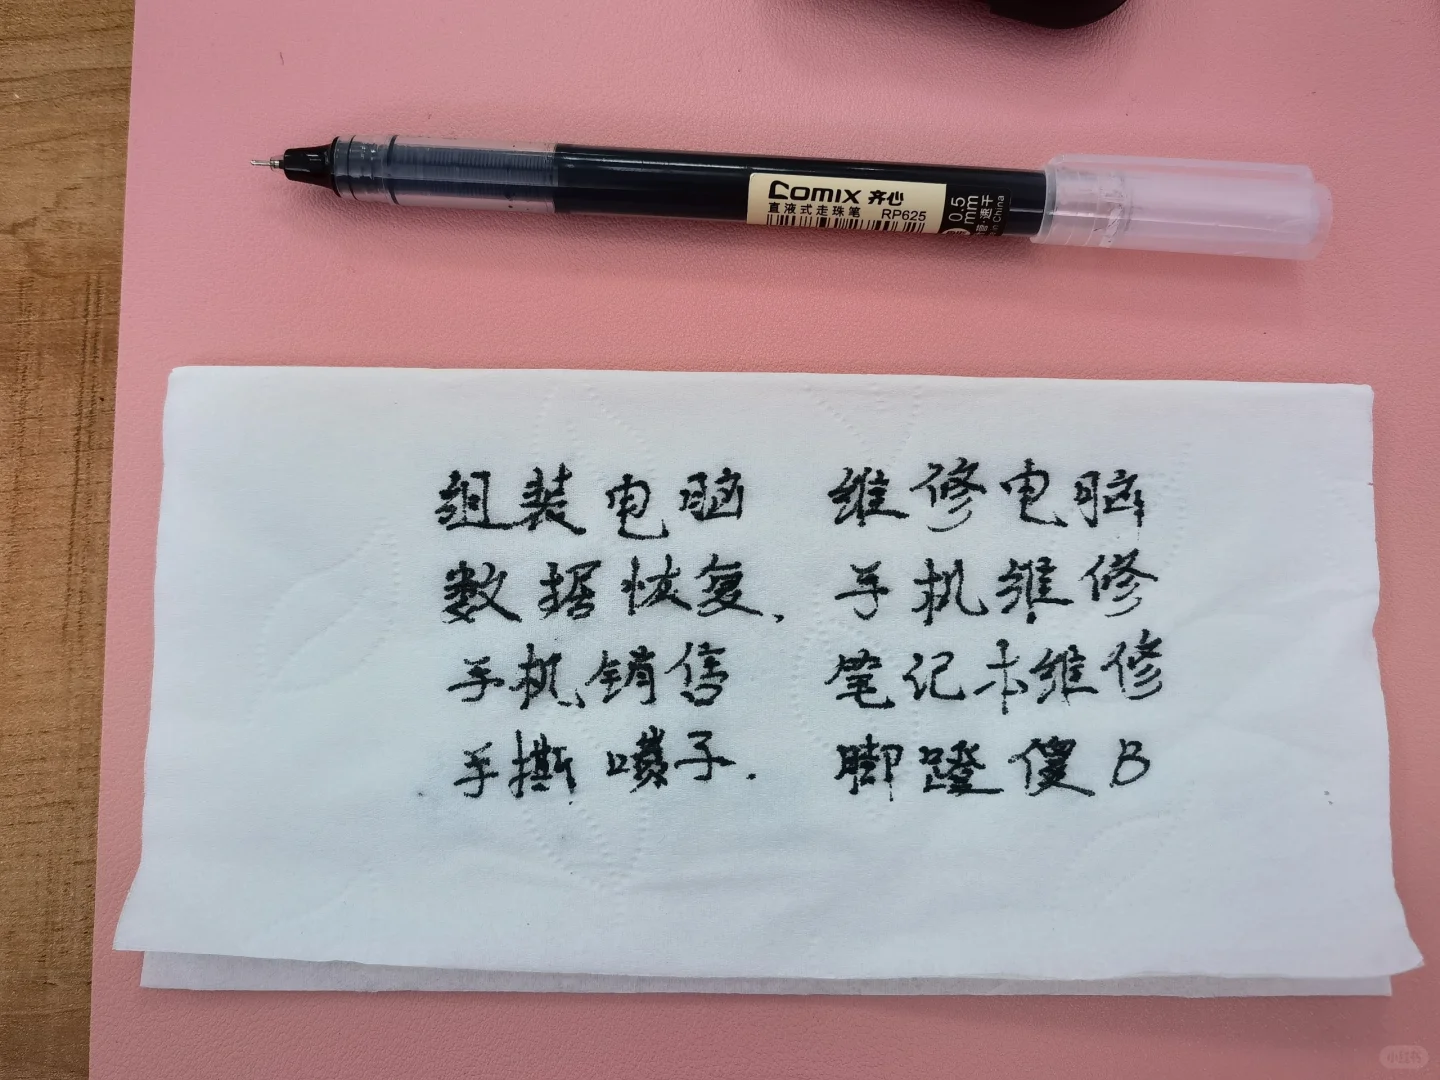 comix 齐心
直液式走珠笔 RP625
0.5mm
速干
组装电脑 维修电脑
数据恢复、手机维修
手机销售 笔记本维修
手撕嘴子. 脚蹬傻B
小红书